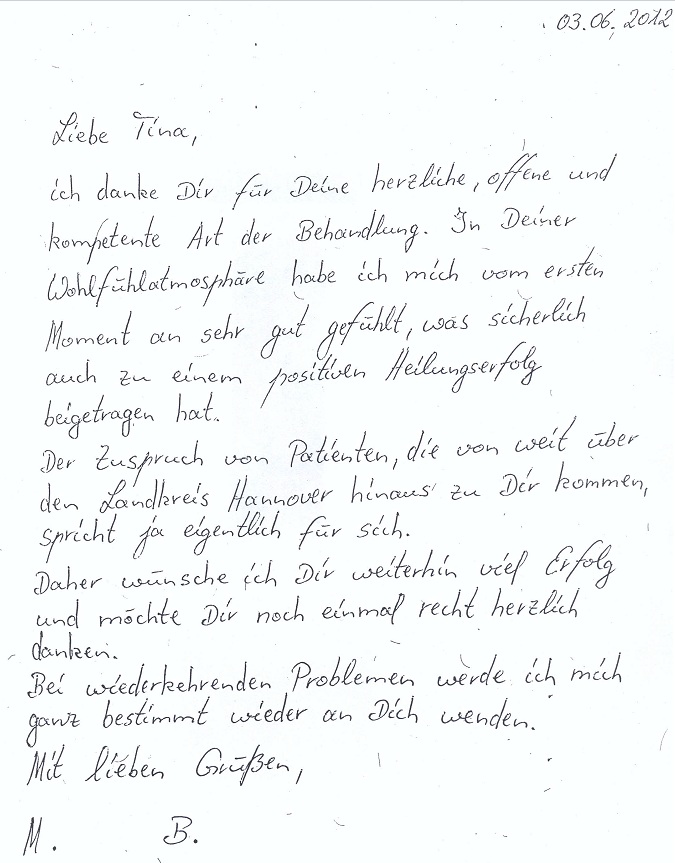 03.06.2012
Liebe Tina,
ich danke Dir für Deine herzliche, offene und
kompetente Art der Behandlung. In Deiner
Wohlfühlatmosphäre habe ich mich vom ersten
Moment an sehr gut gefühlt, was sicherlich
auch zu einem positiven Heilungserfolg
beigetragen hat.
Der Zuspruch von Patienten, die von weit über
den Landkreis Hannover hinaus zu Dir kommen,
spricht ja eigentlich für sich.
Daher wünsche ich Dir weiterhin viel Erfolg
und möchte Dir noch einmal recht herzlich
danken.
Bei wiederkehrenden Problemen werde ich mich
ganz bestimmt wieder an Dich wenden.
Mit lieben Grüßen,
M. B.